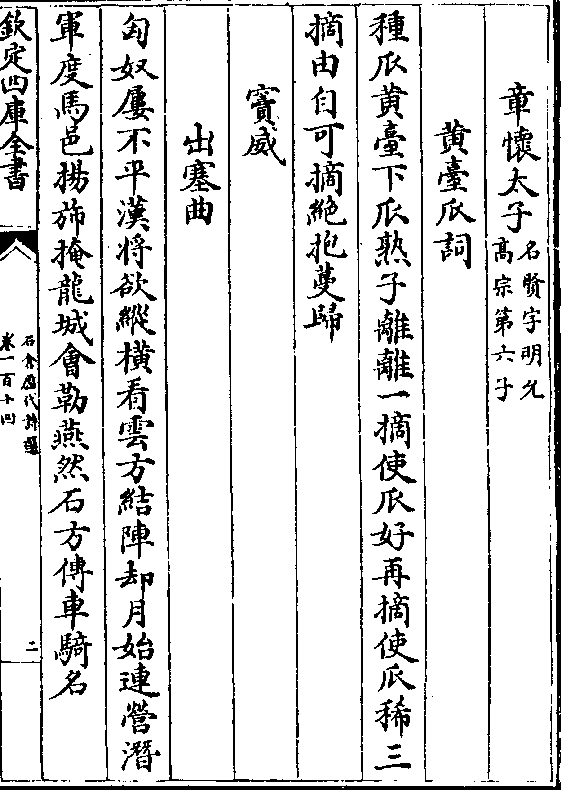 章懷太子名賢字明允
高宗第六子
黄臺瓜詞
種瓜黄臺下瓜熟子離離一摘使瓜好再摘使瓜稀三
摘由自可摘絶抱蔓歸
竇威
出塞曲
匈奴屢不平漢將欲縱横看雲方結陣却月始連營潛
軍度馬邑揚斾掩龍城會勒燕然石方傳車騎名
欽定四庫全書
石倉歴代詩選
卷一百十四
二